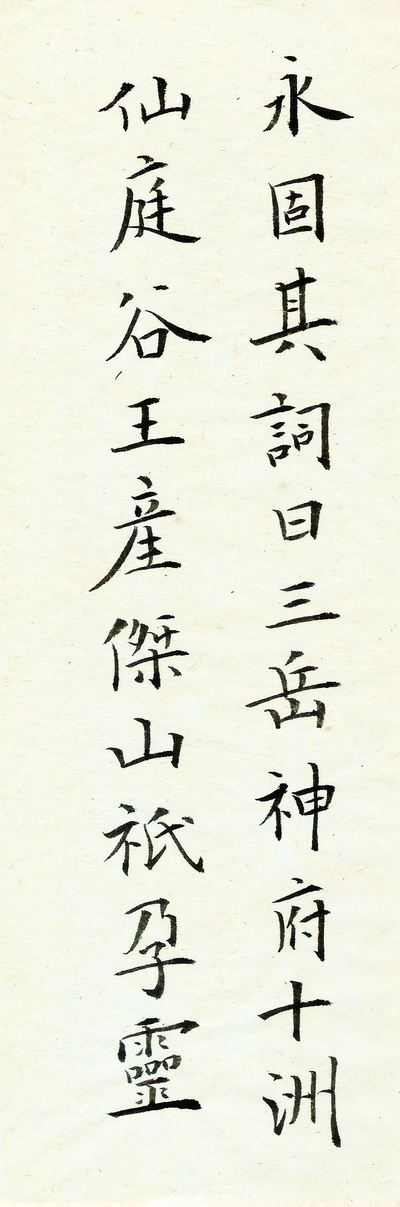 永固其詞曰三岳神府十洲
仙庭谷王産傑山祇孕靈